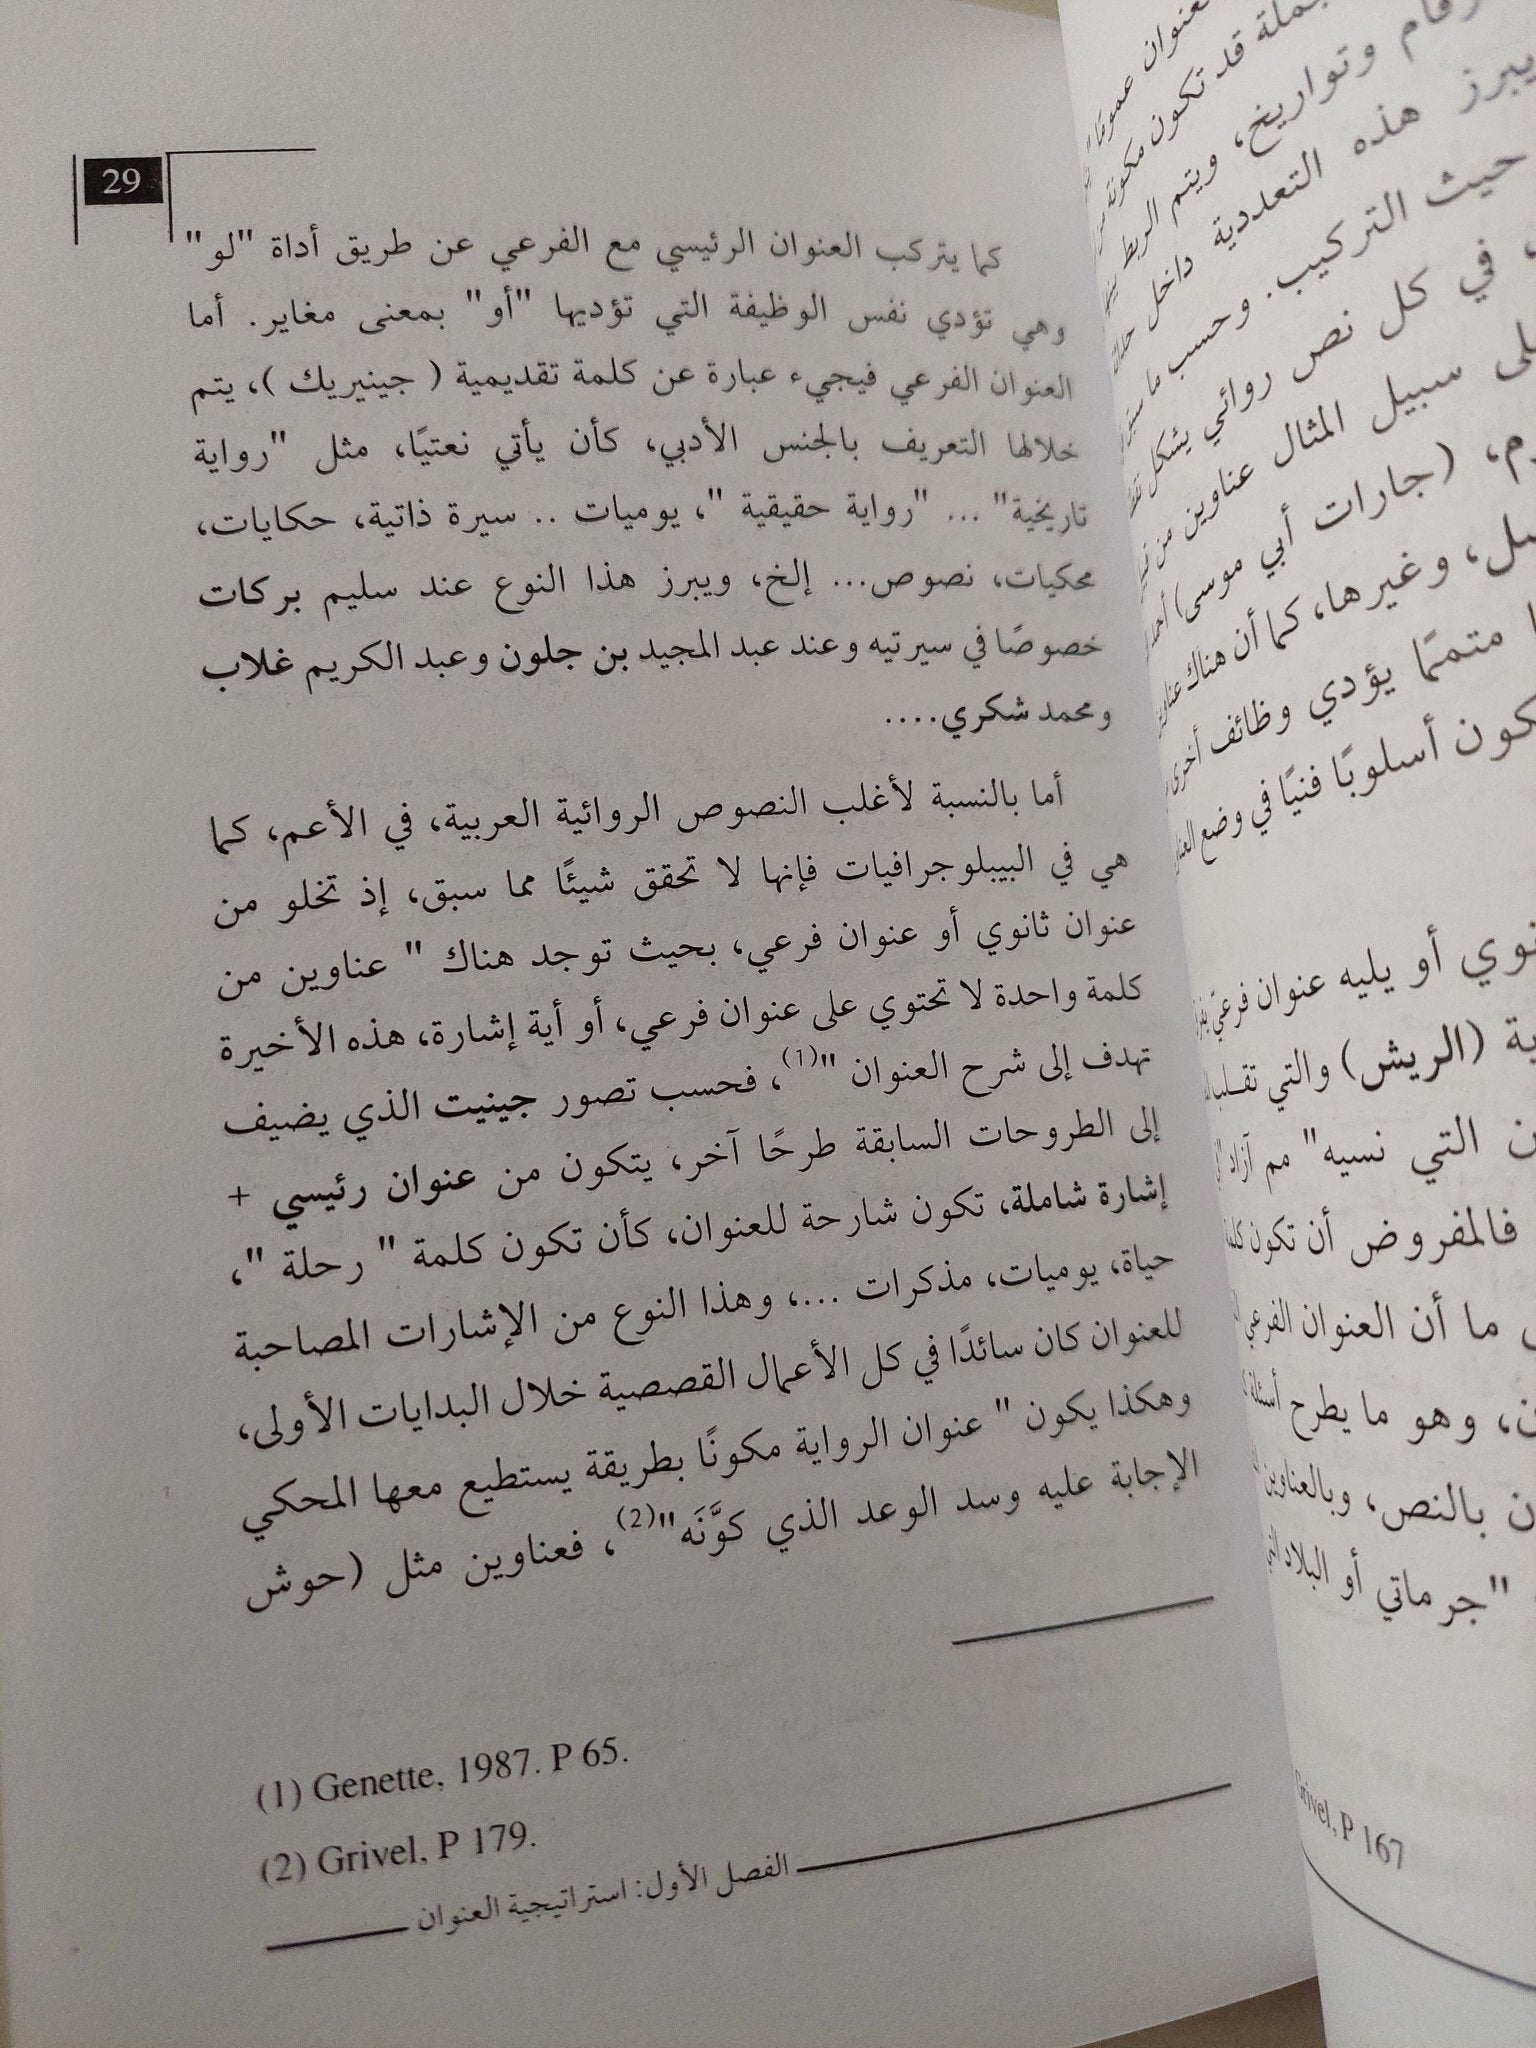 29
كما يتركب العنوان الرئيسي مع الفرعي عن طريق أداة "لو"
وهي تؤدي نفس الوظيفة التي تؤديها "أو" بمعنى مغاير. أما
العنوان الفرعي فيجيء عبارة عن كلمة تقديمية ( جينيريك )، يتم
خلالها التعريف بالجنس الأدبي، كأن يأتي نعتيًا، مثل "رواية
تاريخية" ... "رواية حقيقية "، يوميات .. سيرة ذاتية، حكايات،
محكيات، نصوص... إلخ، ويبرز هذا النوع عند سليم بركات
خصوصًا في سيرتيه وعند عبد المجيد بن جلون وعبد الكريم غلاب
ومحمد شكري....
أما بالنسبة لأغلب النصوص الروائية العربية، في الأعم، كما
هي في البيبلوجرافيات فإنها لا تحقق شيئًا مما سبق، إذ تخلو من
عنوان ثانوي أو عنوان فرعي، بحيث توجد هناك " عناوين من
كلمة واحدة لا تحتوي على عنوان فرعي، أو أية إشارة، هذه الأخيرة
تهدف إلى شرح العنوان "(1)، فحسب تصور جينيت الذي يضيف
إلى الطروحات السابقة طرحًا آخر، يتكون من عنوان رئيسي +
إشارة شاملة، تكون شارحة للعنوان، كأن تكون كلمة " رحلة "،
حياة، يوميات، مذكرات ...، وهذا النوع من الإشارات المصاحبة
للعنوان كان سائدًا في كل الأعمال القصصية خلال البدايات الأولى،
وهكذا يكون " عنوان الرواية مكونًا بطريقة يستطيع معها المحكي
الإجابة عليه وسد الوعد الذي كوَّنَه"(2)، فعناوين مثل (حوش
(1) Genette, 1987. P 65.
(2) Grivel, P 179.
الفصل الأول: استراتيجية العنوان
العنوان عمومًا
جملة قد تكون مكونة من
وتواريخ، ويتم الربط بينها
يبرز هذه التعددية داخل
حيث التركيب. وحسب ما سبق
في كل نص روائي يشكل
سبيل المثال عناوين من
(جارات أبي موسى)
وغيرها، كما أن هناك
متممًا يؤدي وظائف أخرى
أسلوبًا فنيًا في وضع
أو يليه عنوان فرعي
(الريش) والتي تقلب
التي نسيه" مم آزاد
فالمفروض أن تكون
ما أن العنوان الفرعي
وهو ما يطرح أسئلة
بالنص، وبالعناوين
"جرماتي أو البلاد
Grivel, P 167